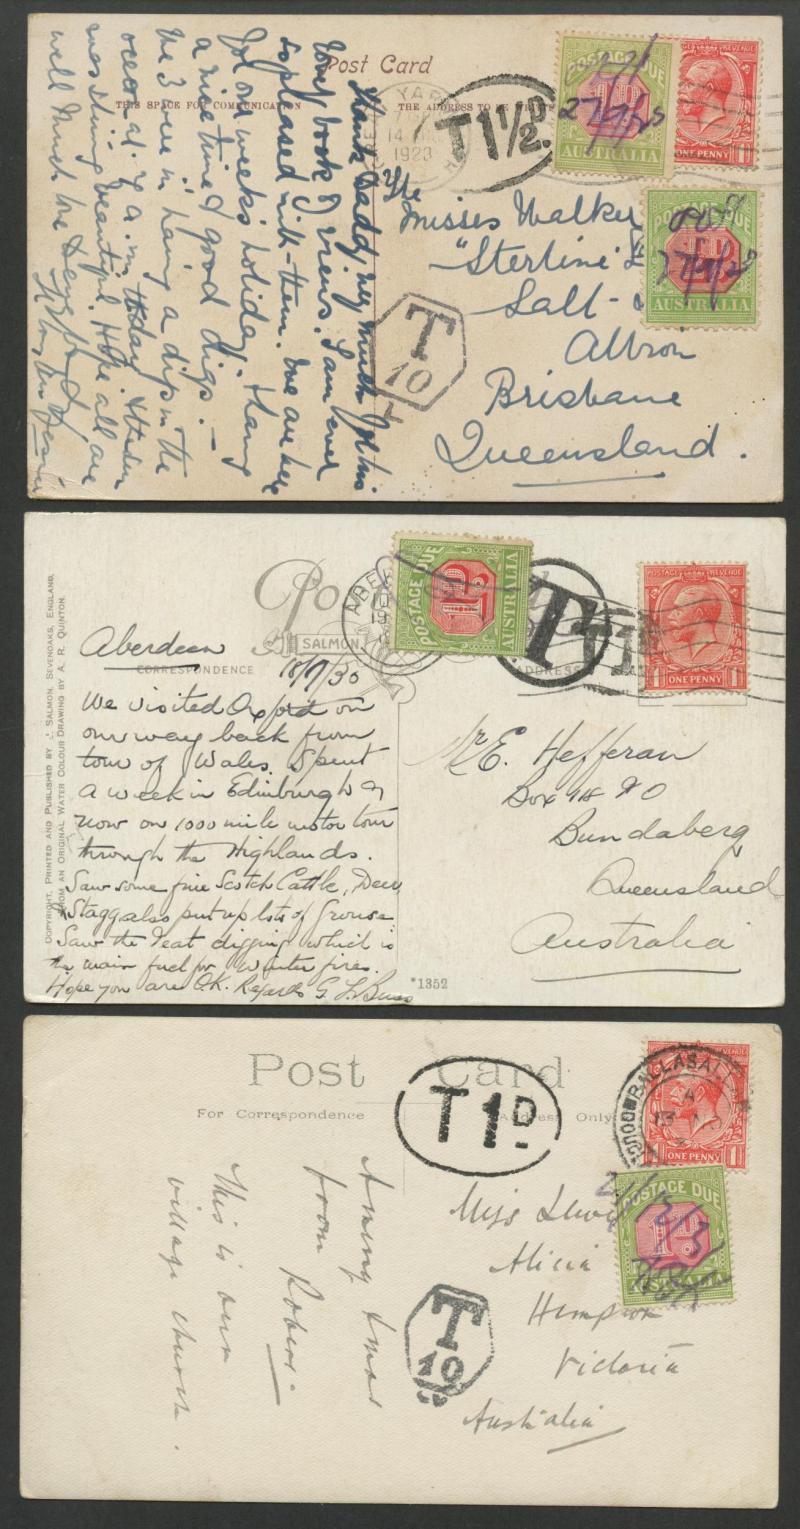 Post Card
THIS SPACE FOR COMMUNICATION
THE ADDRESS TO BE
YAR
14
1923
T 1 1/2 D.
POSTAGE DUE
1D
AUSTRALIA
27/9/23
REVENUE
ONE PENNY
POSTAGE DUE
D
AUSTRALIA
27/9/23
Misses Walker
"Sterline"
Salt-
Albion
Brisbane
Queensland.
T
10
L
Thank Daddy very much for his
book of views. I am ever
so pleased with them. We are here
for one weeks holiday. Having
a nice time & good digs. —
We 3 were in having a dip in the
ocean at 7 a.m. today
beautiful. Hope all are
well Much love
COPYRIGHT, PRINTED AND PUBLISHED BY J. SALMON, SEVENOAKS, ENGLAND.
FROM AN ORIGINAL WATER COLOUR DRAWING BY A. R. QUINTON.
Po
SALMON
CORRESPONDENCE
ADDRESS
ABE
19
POSTAGE DUE
1D.
AUSTRALIA
T
T 1
POSTAGE REVENUE
ONE PENNY
Aberdeen
18/7/30
We visited Oxford on
our way back from
tour of Wales. Spent
a week in Edinburgh &
now on 1000 mile motor tour
through the Highlands.
Saw some fine Scotch Cattle, Deer
& Stagg also put up lots of Grouse
Saw the Peat digging which is
the main fuel for Winter fires.
Hope you are O.K. Regards G
*1352
Mr E. Hefferan
Box
Bundaberg
Queensland
Australia
Post Card
For Correspondence
Address Only
T 1D.
BALLASALLA
DOUG
REVENUE
ONE PENNY
POSTAGE DUE
1D
AUSTRALIA
Miss
Alicia
Victoria
Australia
T
10
This is our
village church.
from Robert